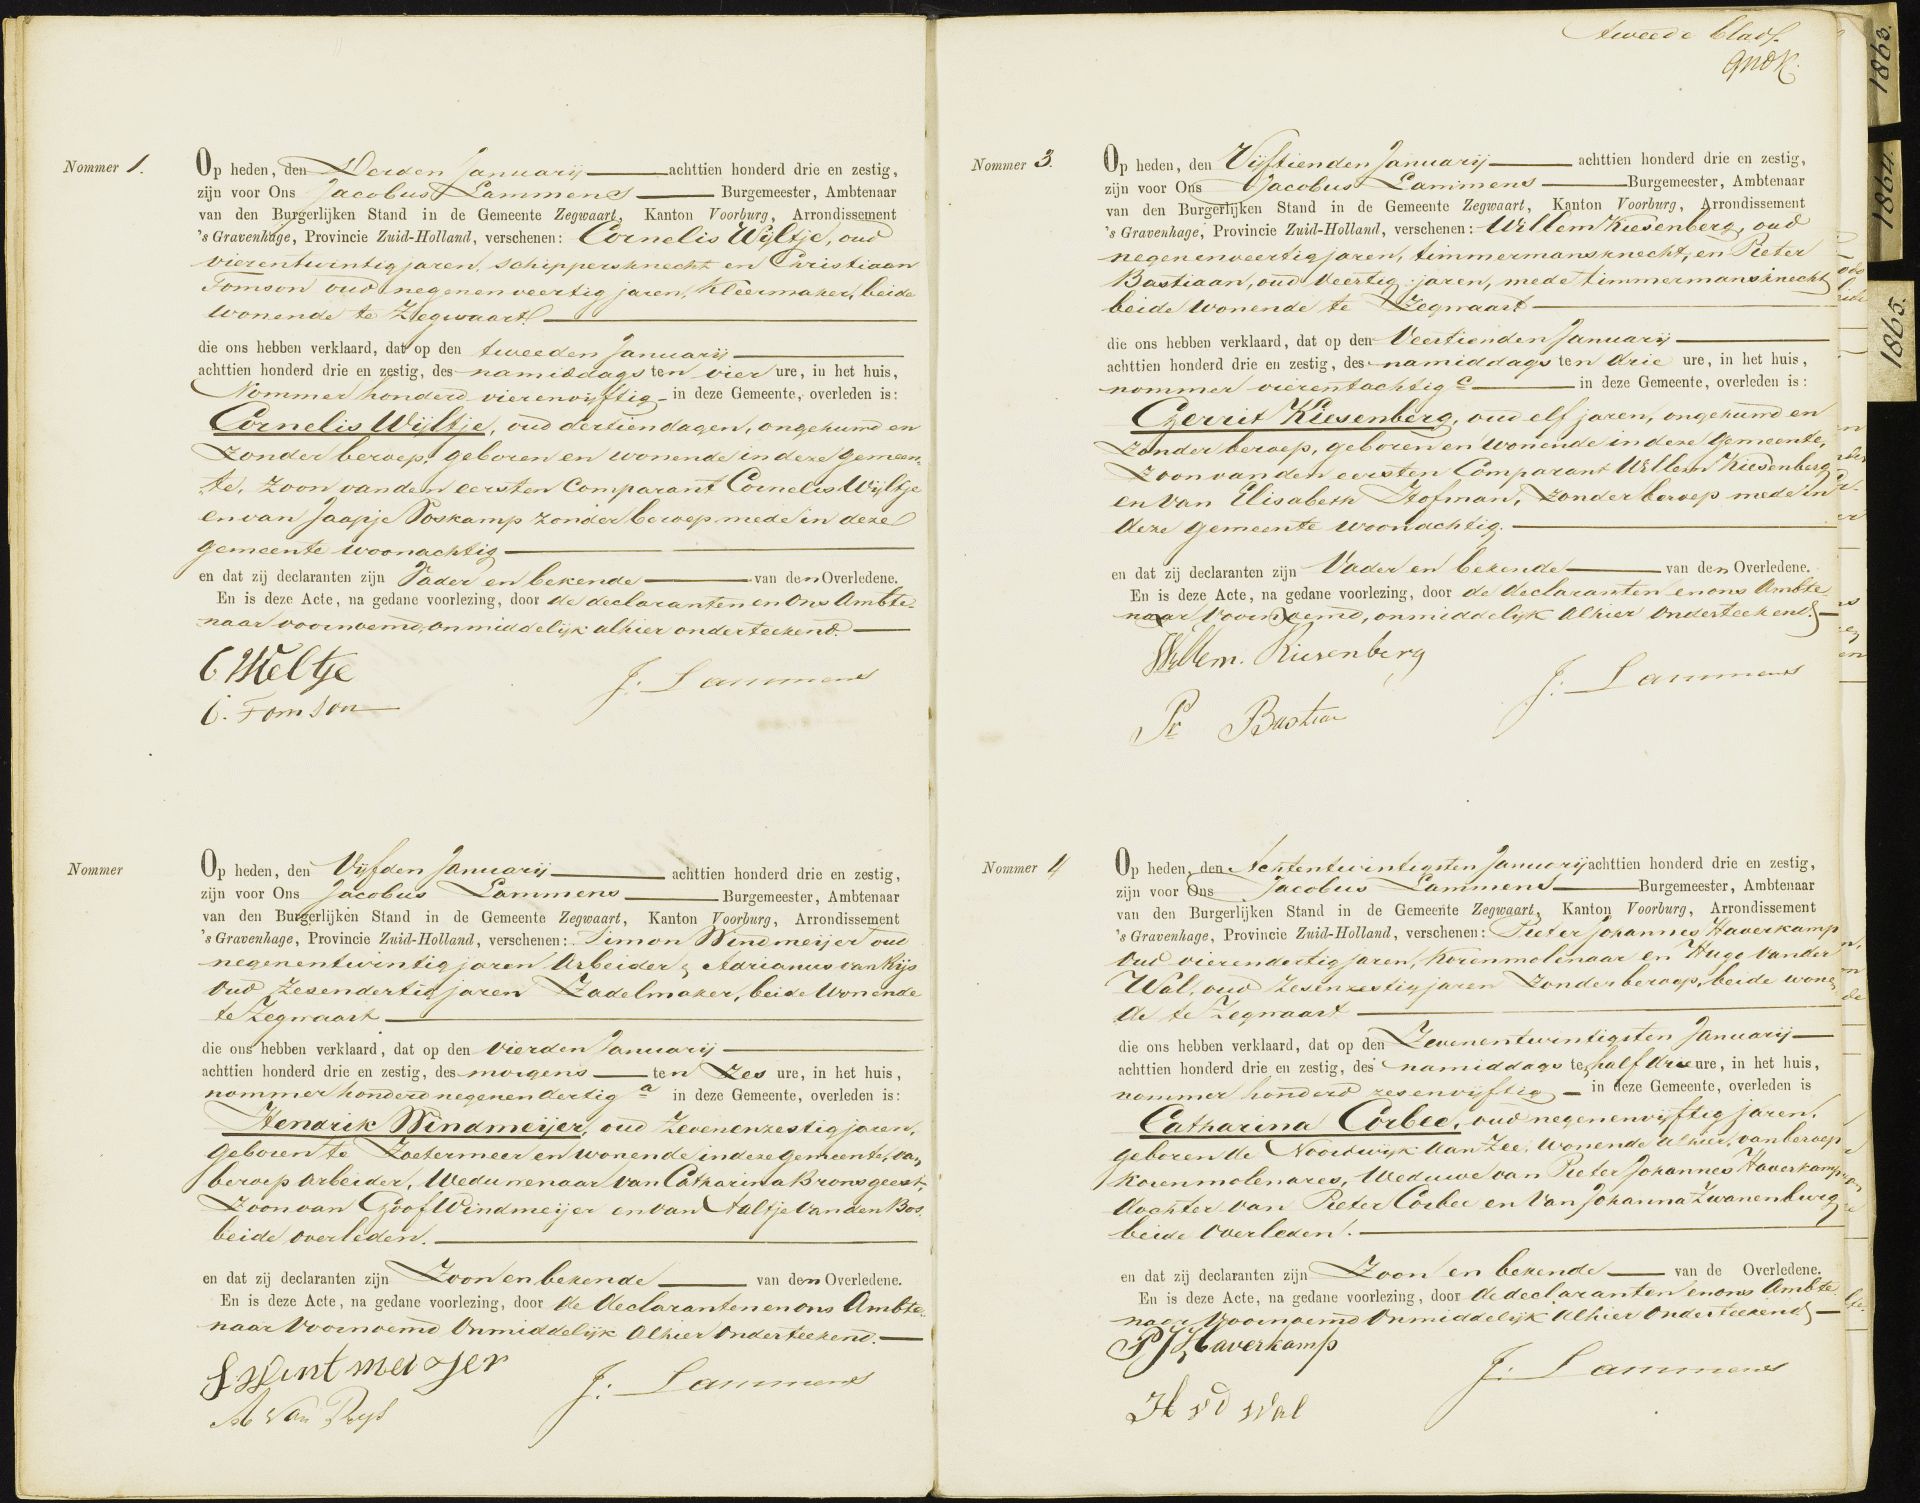 Nommer 1.
Op heden, den Derden Januarij achttien honderd drie en zestig,
zijn voor Ons Jacobus Lammens Burgemeester, Ambtenaar
van den Burgerlijken Stand in de Gemeente Zegwaart, Kanton Voorburg, Arrondissement
's Gravenhage, Provincie Zuid-Holland, verschenen: Cornelis Wijltje, oud
vierentwintig jaren, schippersknecht en Christiaan
Tomson oud negenenveertig jaren, Kleermaker, beide
wonende te Zegwaart.
die ons hebben verklaard, dat op den tweeden Januarij
achttien honderd drie en zestig, des namiddags ten vier ure, in het huis,
Nommer honderd vierenvijftig in deze Gemeente, overleden is:
Cornelis Wijltje, oud dertien dagen, ongehuwd en
zonder beroep, geboren en wonende in deze gemeen-
te, zoon van den eersten Comparant Cornelis Wijltje
en van Jaapje Voskamp zonder beroep mede in deze
gemeente woonachtig
en dat zij declaranten zijn Vader en bekende van den Overledene.
En is deze Acte, na gedane voorlezing, door de declaranten en Ons Ambte-
naar voornoemd, onmiddelijk alhier onderteekend.
C Weltje
J. Lammens
C. Tomson
Nommer
Op heden, den Vijfden Januarij achttien honderd drie en zestig,
zijn voor Ons Jacobus Lammens Burgemeester, Ambtenaar
van den Burgerlijken Stand in de Gemeente Zegwaart, Kanton Voorburg, Arrondissement
's Gravenhage, Provincie Zuid-Holland, verschenen: Simon Windmeijer oud
negenentwintig jaren Arbeider & Adrianus van Rijs
oud zesendertig jaren Zadelmaker, beide wonende
te Zegwaart
die ons hebben verklaard, dat op den vierden Januarij
achttien honderd drie en zestig, des morgens ten zes ure, in het huis,
nommer honderd negenendertig a in deze Gemeente, overleden is:
Hendrik Windmeijer, oud zevenenzestig jaren,
geboren te Zoetermeer en wonende in deze gemeente, van
beroep arbeider, Weduwenaar van Catharina Bronsgeest,
Zoon van Goof Windmeijer en van Aaltje van den Bos
beide overleden.
en dat zij declaranten zijn Zoon en bekende van den Overledene.
En is deze Acte, na gedane voorlezing, door de declaranten en ons Ambte-
naar Voornoemd Onmiddelijk Alhier Onderteekend.
S Wintmeijer
J. Lammens
A van Rijs
tweede blad.
Nommer 3.
Op heden, den Vijftienden Januarij achttien honderd drie en zestig,
zijn voor Ons Jacobus Lammens Burgemeester, Ambtenaar
van den Burgerlijken Stand in de Gemeente Zegwaart, Kanton Voorburg, Arrondissement
's Gravenhage, Provincie Zuid-Holland, verschenen: Willem Kiesenberg, oud
negenenveertig jaren, timmermansknecht, en Pieter
Bastiaan, oud Veertig jaren, mede timmermansknecht
beide wonende te Zegwaart
die ons hebben verklaard, dat op den Veertienden Januarij
achttien honderd drie en zestig, des namiddags ten drie ure, in het huis,
nommer vierentachtig c in deze Gemeente, overleden is:
Gerrit Kiesenberg, oud elf jaren, ongehuwd en
zonder beroep, geboren en wonende in deze Gemeente,
Zoon van den eersten Comparant Willem Kiesenberg
en van Elisabeth Hofman, zonder beroep mede in
deze gemeente woonachtig.
en dat zij declaranten zijn Vader en bekende van den Overledene.
En is deze Acte, na gedane voorlezing, door de declaranten en ons Ambte-
naar Voornoemd, onmiddelijk alhier Onderteekend.
Willem. Kiesenberg
J. Lammens
Pr Bastian
Nommer 4
Op heden, den Achtentwintigsten Januarij achttien honderd drie en zestig,
zijn voor Ons Jacobus Lammens Burgemeester, Ambtenaar
van den Burgerlijken Stand in de Gemeente Zegwaart, Kanton Voorburg, Arrondissement
's Gravenhage, Provincie Zuid-Holland, verschenen: Pieter Johannes Haverkamp
oud vierendertig jaren, Korenmolenaar en Hugo van der
Wal, oud zesenzestig jaren zonder beroep, beide wonen-
de te Zegwaart
die ons hebben verklaard, dat op den Zevenentwintigsten Januarij
achttien honderd drie en zestig, des namiddags te half drie ure, in het huis,
nommer honderd zesenvijftig in deze Gemeente, overleden is
Catharina Corbee, oud negenenvijftig jaren,
geboren de Noordwijk aan Zee, wonende alhier, van beroep
Korenmolenares, Weduwe van Pieter Johannes Haverkamp
dochter van Pieter Corbee en van Johanna Zwanenburg
beide Overleden.
en dat zij declaranten zijn Zoon en bekende van de Overledene.
En is deze Acte, na gedane voorlezing, door de declaranten en ons Ambte-
naar Voornoemd Onmiddelijk Alhier Onderteekend
P J Haverkamp
J. Lammens
H vd Wal
1863.
1864.
1865.